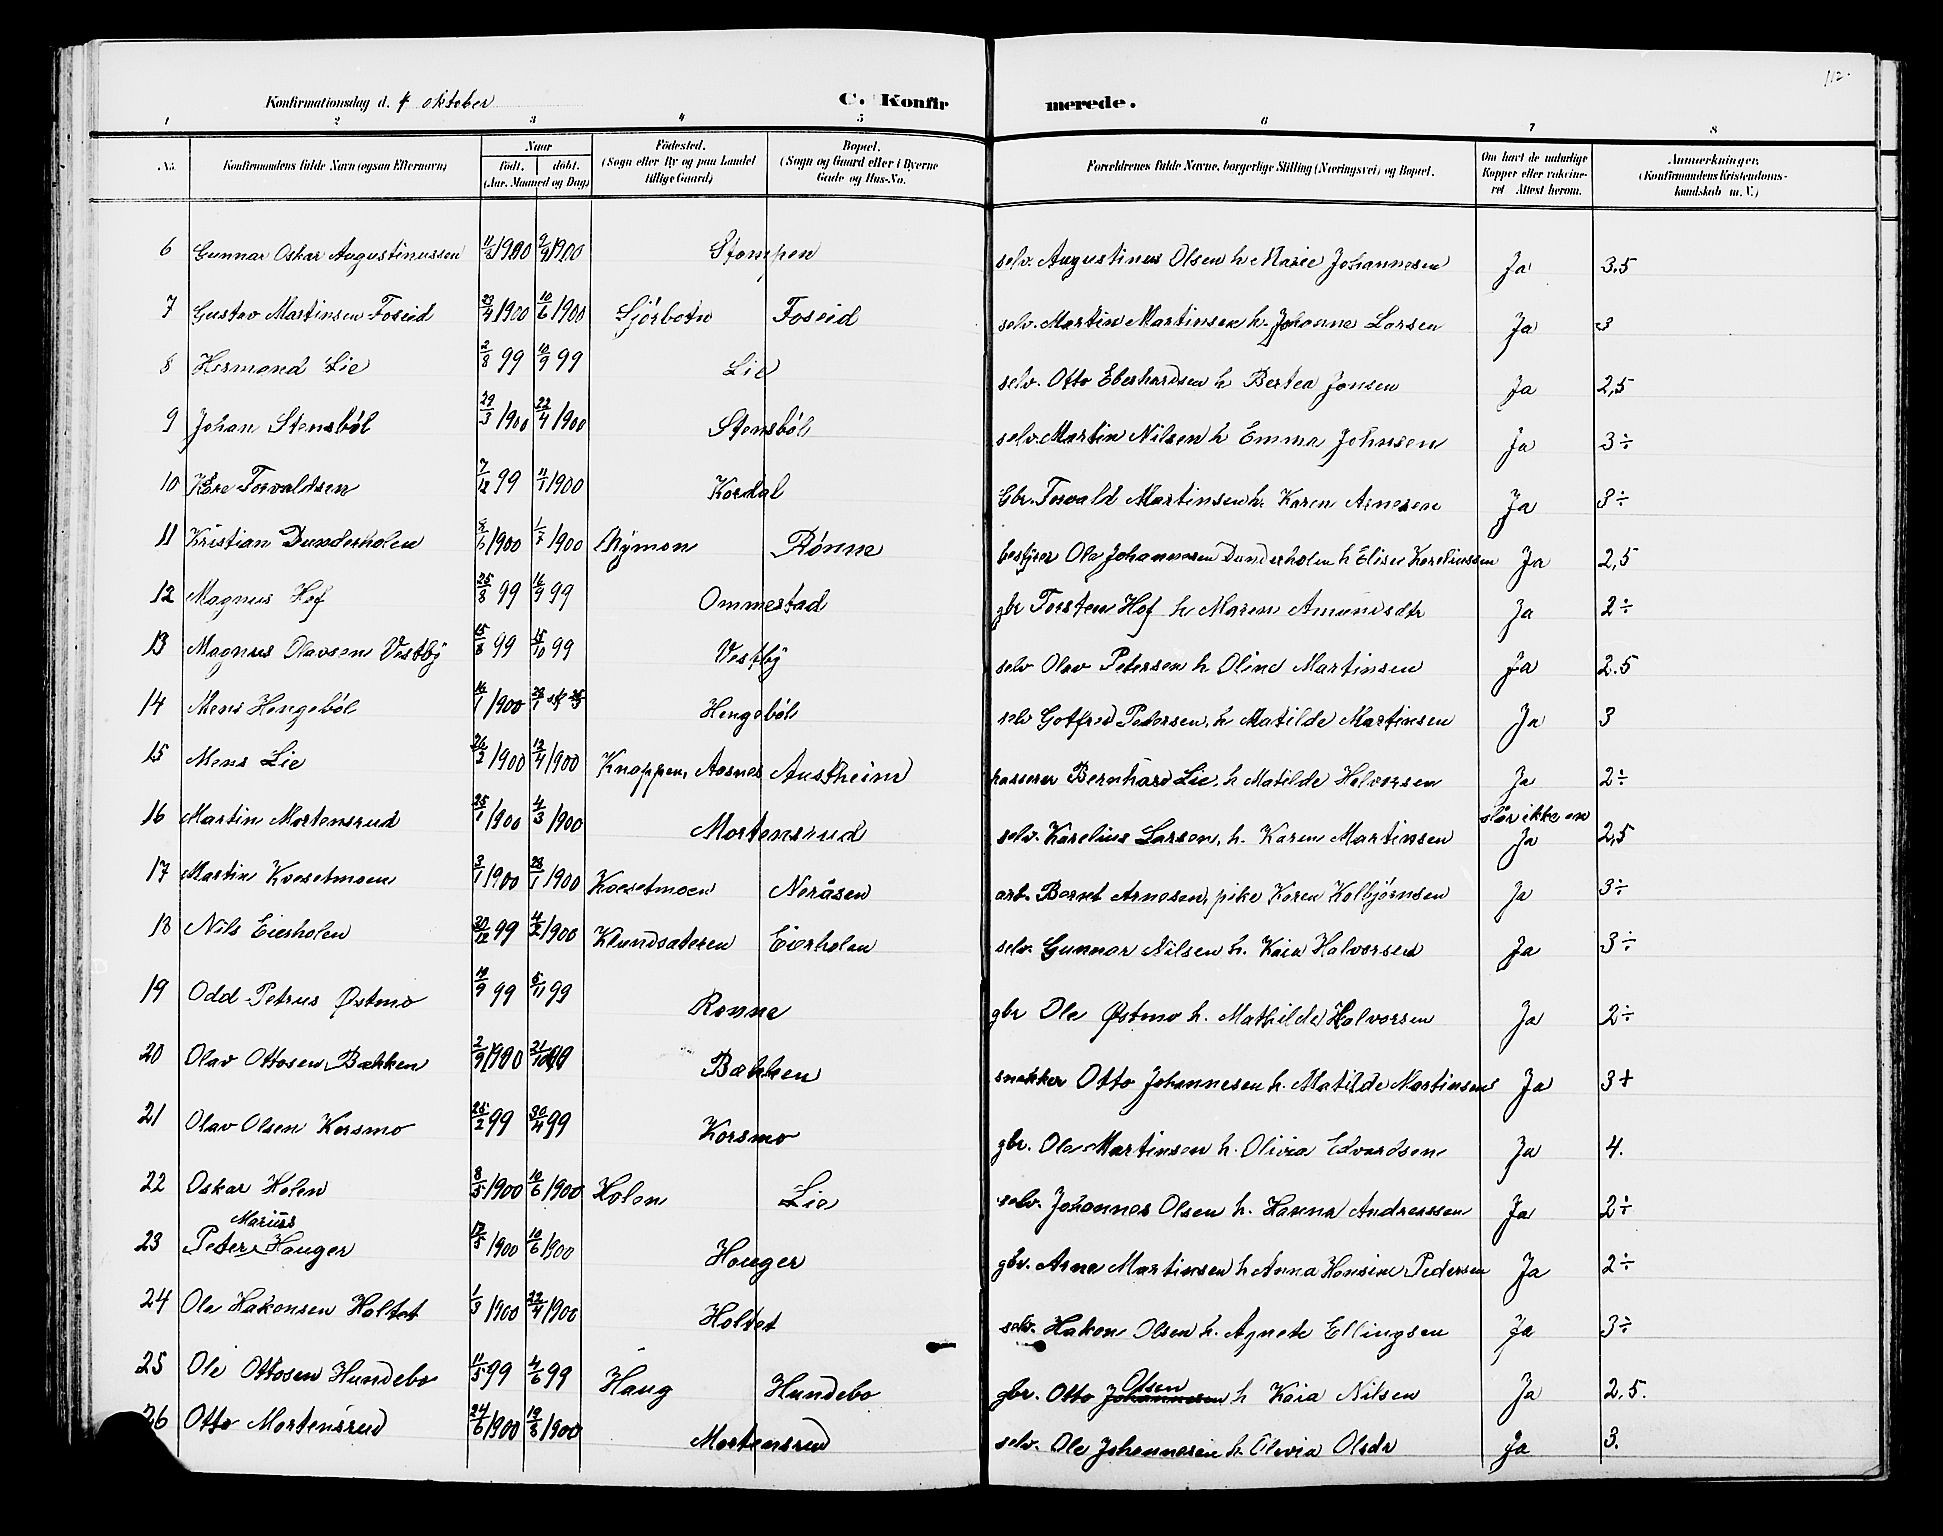 112.
Konfirmationsdag d. 4 oktober C. Konfirmerede.
1 2 3 4 5 6 7 8
No. Konfirmandens fulde Navn (ogsaa Efternavn) Naar født. døbt. (Aar, Maaned og Dag) Fødested. (Sogn eller By og paa Landet tillige Gaard) Bopæl. (Sogn og Gaard eller i Byerne Gade og Hus-No. Forældrenes fulde Navne, borgerlige Stilling (Næringsvei) og Bopæl. Om havt de naturlige Kopper eller vakcineret Attest herom. Anmerkninger. (Konfirmandens Kristendomskundskab m. V.)
6 Gunnar Oskar Augustinussen 1900 9/9 1900 Stompen selv. Augustinus Olsen h Marie Johannesen Ja 3.5
7 Gustav Martinsen Foseid 1900 10/6 1900 Sjørbotn Foseid selv. Martin Martinsen h. Johanne Larsen Ja 3
8 Hermand Lie 2/8 99 10/9 99 Lie selv. Otto Eberhardsen h Bertea Jonsen Ja 2,5
9 Johan Stensbøl 29/3 1900 22/4 1900 Stensbøl selv. Martin Nilsen h Emma Johnsen Ja 3÷
10 Kåre Torvaldsen 7/12 99 11/1 1900 Kordal Gbr. Torvald Martinsen h. Karen Arnesen Ja 3÷
11 Kristian Dunderholen 1900 1/7 1900 Mymon Rønne bestyrer Ole Johannesen Dunderholen h Elise Karelinssen Ja 2,5
12 Magnus Hof 25/8 99 99 Ommestad gbr Torsten Hof h Maren Amundsdtr Ja 2÷
13 Magnus Olavsen Vestby 15/8 99 15/10 99 Vestby selv Olav Petersen h Oline Martinsen Ja 2.5
14 Mens Hengebøl 1900 Hengebøl selv Gotfred Petersen, h Matilde Martinsen Ja 3
15 Mens Lie 1900 1900 Knappen, Aasnes Austheim kasserer Bernhard Lie, h Matilde Halvorsen Ja 2÷
16 Martin Mortensrud 25/1 1900 4/3 1900 Mortensrud selv. Karelius Larsen, h. Karen Martinsen slår ikke an Ja 2,5
17 Martin Kvesetmoen 3/1 1900 28/1 1900 Kvesetmoen Neråsen arb. Bernt Arnesen, pike Karen Kolbjørnsen Ja 3÷
18 Nils Eierholen 20/12 99 4/2 1900 Klundsæteren Eierholen selv. Gunnar Nilsen h. Kaia Halvorsen Ja 3÷
19 Odd Petrus Østmo 99 5/11 99 Rønne gbr Ole Østmo h. Mathilde Halvorsen Ja 2÷
20 Olav Ottosen Bækken 2/9 1900 Bækken snekker Otto Johannesen h. Matilde Martinsens Ja 3+
21 Olav Olsen Korsmo 25/2 99 30/4 99 Korsmo gbr. Ole Martinsen h. Olivia Edvardsen Ja 4.
22 Oskar Holen 8/5 1900 10/6 1900 Holen Lie selv. Johannes Olsen h. Hanna Andreassen Ja 2÷
Marius
23 Peter Hauger 17/5 1900 10/6 1900 Hauger gbr. Arne Martinsen h Anna Hansine Pedersen Ja 2÷
24 Ole Hakonsen Holtet 1/3 1900 22/4 1900 Holtet selv. Hakon Olsen h. Agnete Ellingsen Ja 3÷
25 Ole Ottosen Hundebo 11/5 99 4/6 99 Haug Hundebo gbr. Otto Johannesen Olsen h Kaia Nilsen Ja 2,5.
26 Otto Mortensrud 24/6 1900 19/8 1900 Mortensrud selv. Ole Johannesen h. Olivia Olsdr Ja 3.